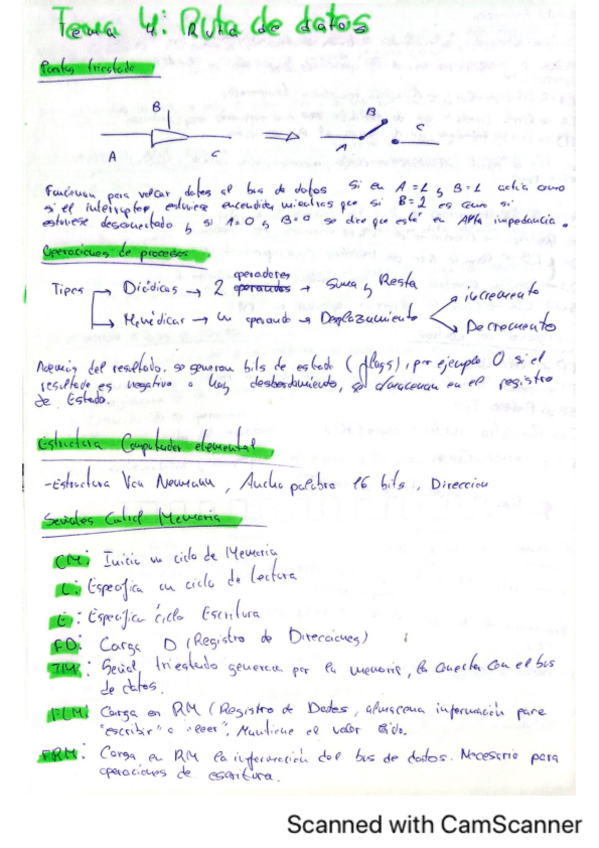 Tema 4: Ruta de datos
Puertas triestado
B
A
C
B
A
C
Funcionan para volcar datos al bus de datos si en A = 1 y B = 1 actúa como
si el interruptor estuviese encendido, mientras que si B = 1 es como si
estuviese desconectado y si A=0 y B=0 se dice que está en Alta impedancia.
Operaciones de proceso
operadores
Tipos → Diádicas → 2 operandos → Suma y Resta
→ incremento
→ un operando → Desplazamiento
→ Decremento
Además del resultado, se generan bits de estado (flags), por ejemplo 0 si el
resultado es negativo o hay desbordamiento, se almacenan en el registro
de Estado.
Estructura Computador elemental
-Estructura Von Neumann, Ancho palabra 16 bits, Direccion
Señales Memoria
CM: Inicia un ciclo de Memoria
L: Especifica un ciclo de lectura
E: Especifica ciclo Escritura
FD: Carga D (Registro de Direcciones)
Señal triestado por la memoria, la conecta con el bus
de datos.
FLM: Carga en RM (Registro de Datos, almacena información para
"escribir" o "leer". Mantiene el valor
FRM: Carga en RM la información del bus de datos. Necesario para
operaciones de escritura.
Scanned with CamScanner